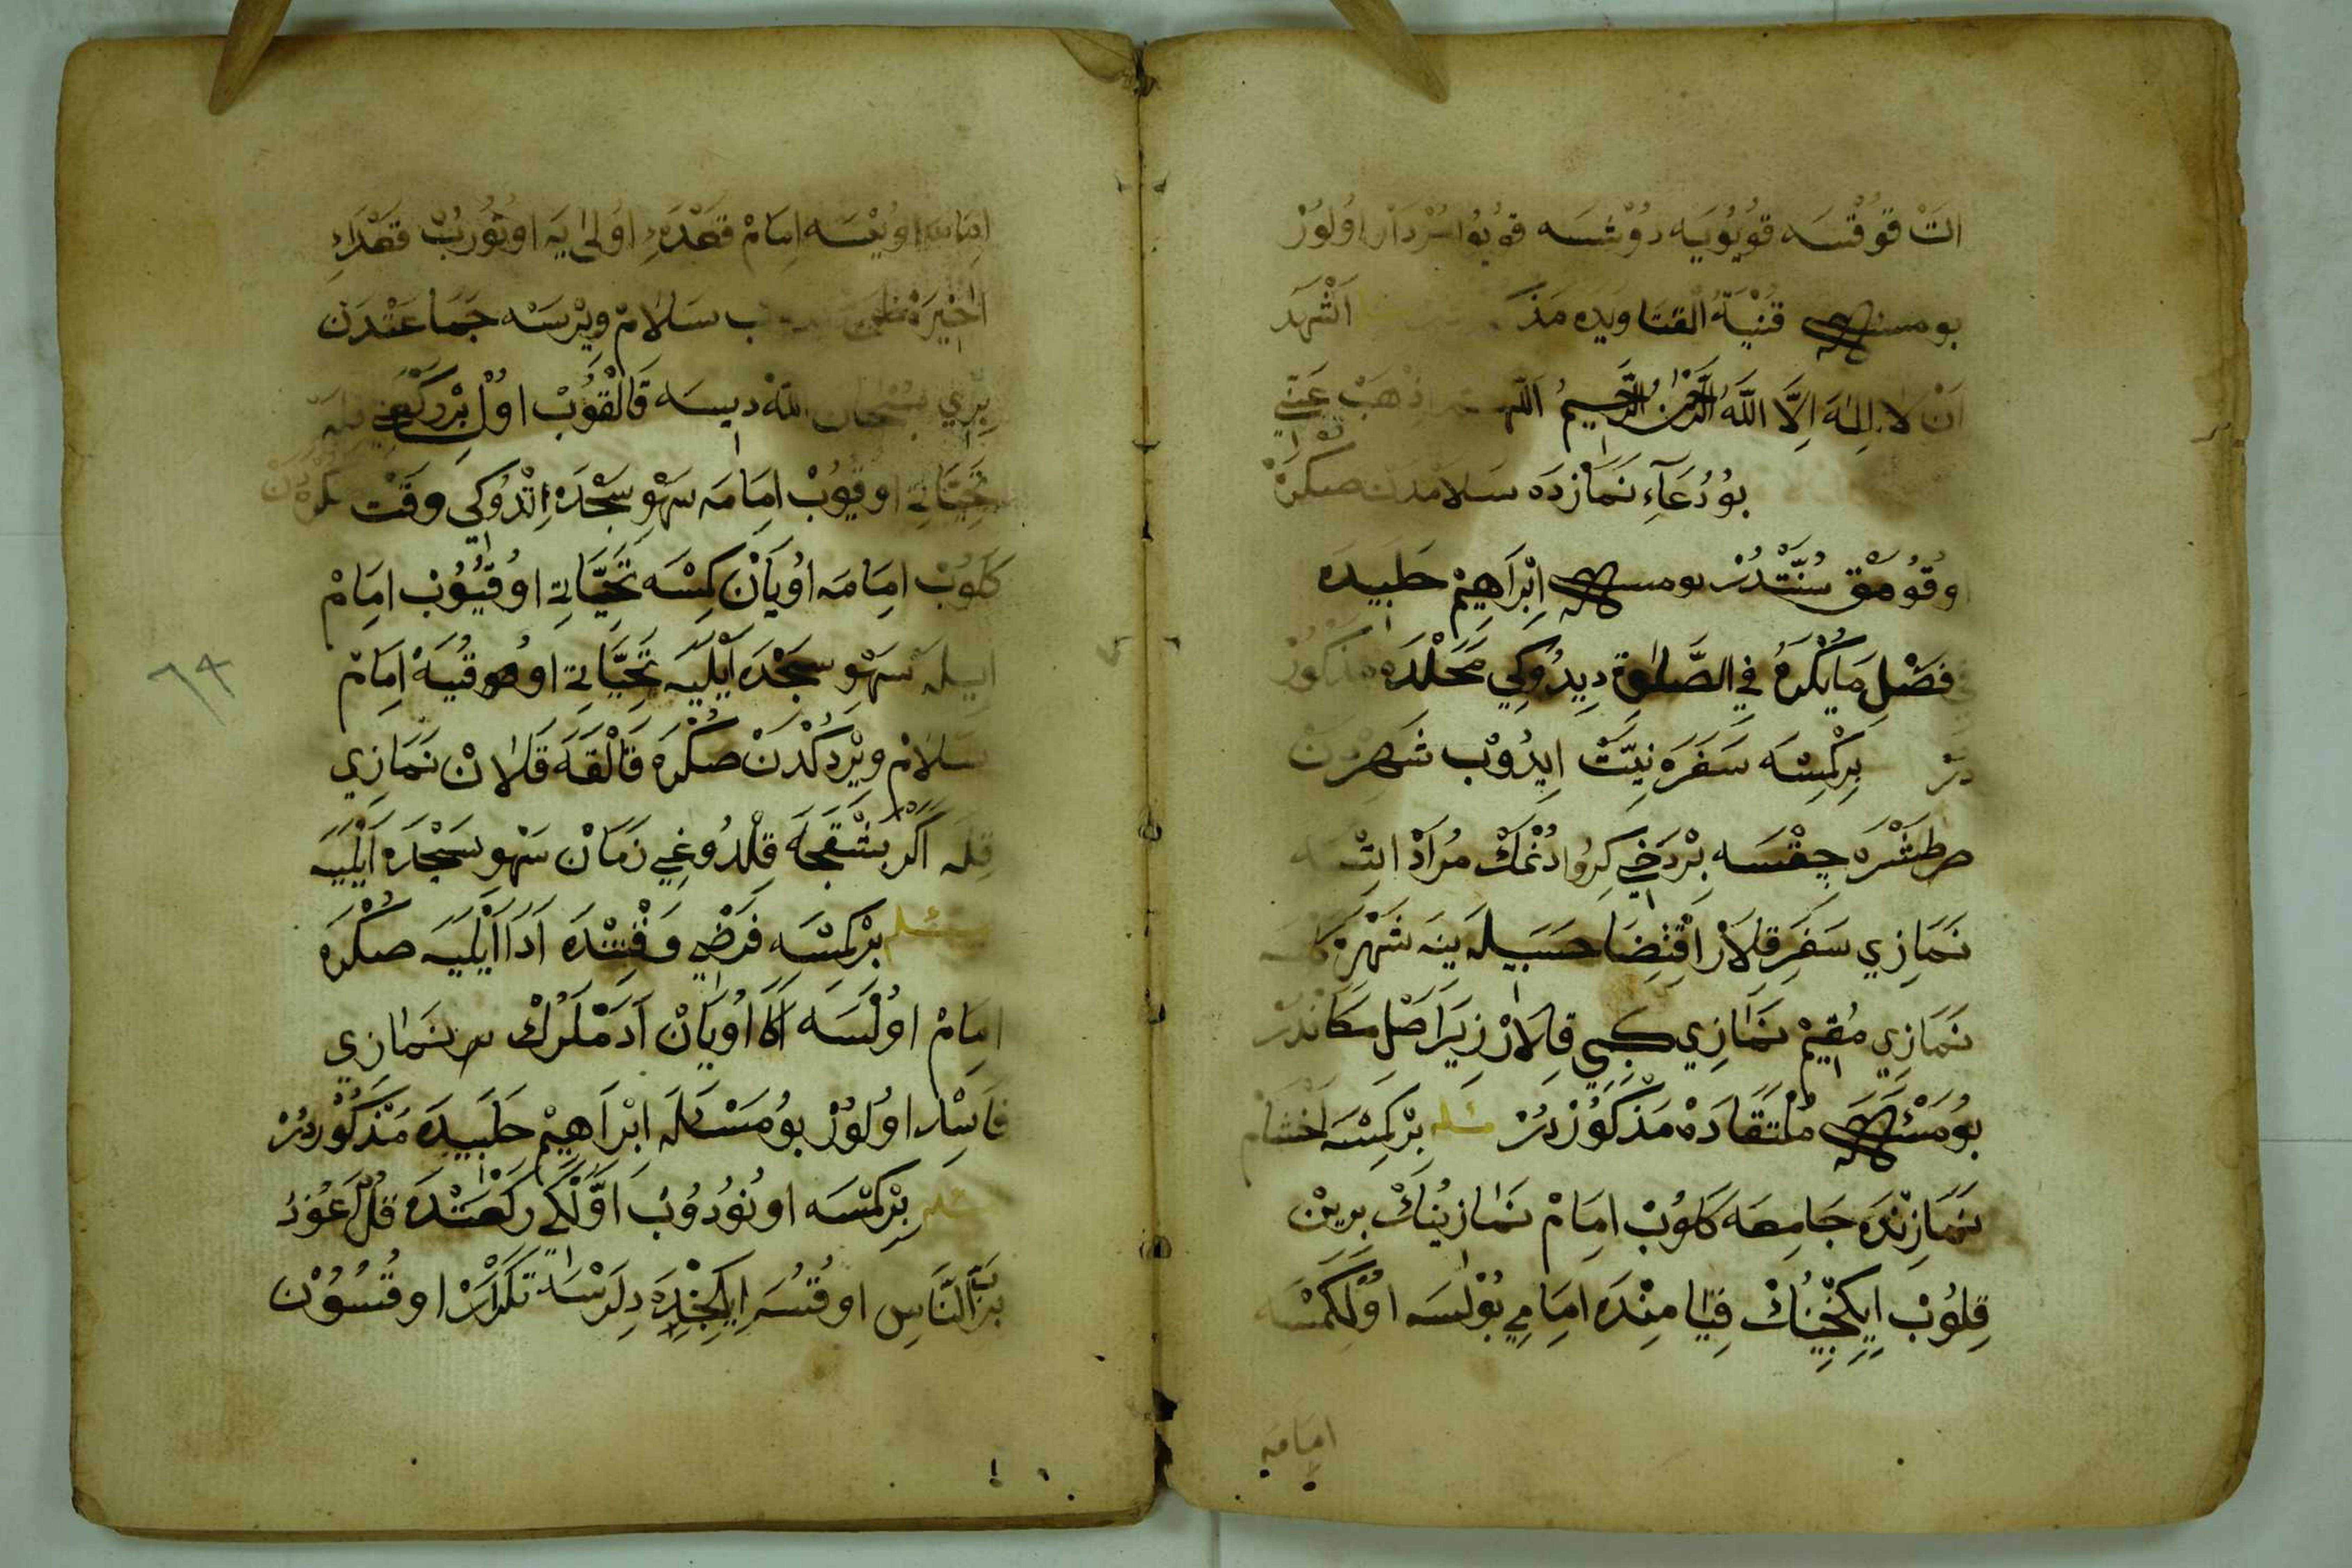 اتَ قوُقْسَه قوُيُويَه دُوشسَه قويُوا سُرْدَارْ اوُلوُرْ
بو مسئله قُنْيَةُ الْفتَاويده مَذك اَشْهَدُ
اَنْ لاَ اِلٰهَ اِلاَّ اللّٰهُ الرَّحْمٰنُ الرَّحِيمُ اَللّٰهم اَذْهَبْ عَنّي
بوُ دُعَاءِ نَمَازدَه سَلاَمدَن صكره
اوقُومَق سُنَّتْدُرْ بو مسئله اِبْرَاهِيمْ حَلَبِيده
فَصْلِ مَا يُكْرَهُ فِي الصَّلوٰةِ دِيدُوكِي مَحَلْدَه مَذْكُورْ
دُرْ بِرْكِمْسَه سَفَرَه نِيَّتْ ايدُوب شَهِردَنْ
طَشْرَه چِقْسَه بِرْدَخِي كِرُو دُنْمَكْ مُرَادْ اتْسَه
نَمَازِي سَفَرِي قِلاَرْ اِقْتِضَا حسَبيله ينَه شَهْرَه كلسه
نَمَازِي مُقِيمْ نَمَازِي كِبِي قِلاَرْ زِيرَا اَصْل مَكَانْدُرْ
بُو مَسْئَله مُلْتَقَادَه مَذكُورْ دُرْ مسئله بِرْكِمْسَه اَخْشَام
نَمَازِنْدَه جَامِعَه كَلوُبْ اِمَامْ نَمَازينُكْ بِرِينْ
قِلوُبْ اِيكِنْجِينُكْ قِيَامِنْدَه اِمَامِي بوُلْسَه اوُلْكِمْسَه
امامه
امَامَه اوُيْسَه اِمَامْ قَعْدَۀ اوُلىٰ يَه اوتُورُبْ قَعْدَۀ
اَخِيرَه ب سَلاَمْ وِيرْسَه جَمَاعَتْدَن
بِرِي سُبْحَان اللّٰه ديسَه قَالْقوُبْ اوُلْ بِرْ رَكْعَتِي
تَحِيَّاتِي اوقُيوُبْ اِمَامَه سَهْوِ سَجْدَه اِتْدُوكي وقْت
كَلوُبْ اِمَامَه اوُيَانْ كِمْسَه تَحِيَّاتِي اوُقُيوُبْ اِمَامْ
ايله سَهْوِ سجْدَه اَيْليَه تَحِيَّاتِي اوقُيَه اِمَامْ
سَلاَمْ وِيرْدُكْدَنْ صُكْرَه قَالْقَه قَلاَنْ نَمَازِي
قِلَه اَكَرْ بَشْقَجَه قِلْدُوغِي زَمَانْ سَهْوِ سَجْدَه اَيْلَيَه
مسئله بِرْكِمْسَه فَرْضِي وَقْتِنْدَه اَدَا اَيْلَيَه صُكْرَه
اِمَامْ اوُلْسَه اَكَا اوُيَانْ آدَمْلَرُكْ نَمَازِي
فَاسِد اوُلوُرْ بوُ مَسْئَلَه اِبْرَاهِيمْ حَلَبِيدَه مَذْكُورْدُرْ
مسئله بِرْكِمْسَه اونُودُوبْ اَوَّلْكِي رَكْعَتْدَه قُلْ اَعُوذُ
بِرَبِّ النَّاسِ اوقُسَه اِيكِنْجِيدَه دِلَرْسَه تَكْرَارْ اوقُسُونْ
٦٩